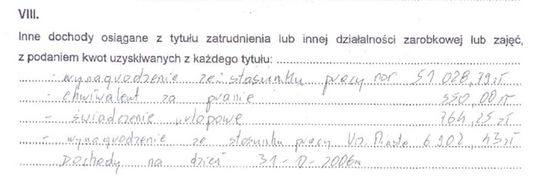 VIII.
Inne dochody osiągane z tytułu zatrudnienia lub innej działalności zarobkowej lub zajęć,
z podaniem kwot uzyskiwanych z każdego tytułu:
- wynagrodzenie ze stosunku pracy 51 028,79 zł
- ekwiwalent za pranie 550,00 zł
- świadczenie urlopowe 764,25 zł
- wynagrodzenie ze stosunku pracy Urz. Miasta 6 902,43 zł
Dochody na dzień 2006r